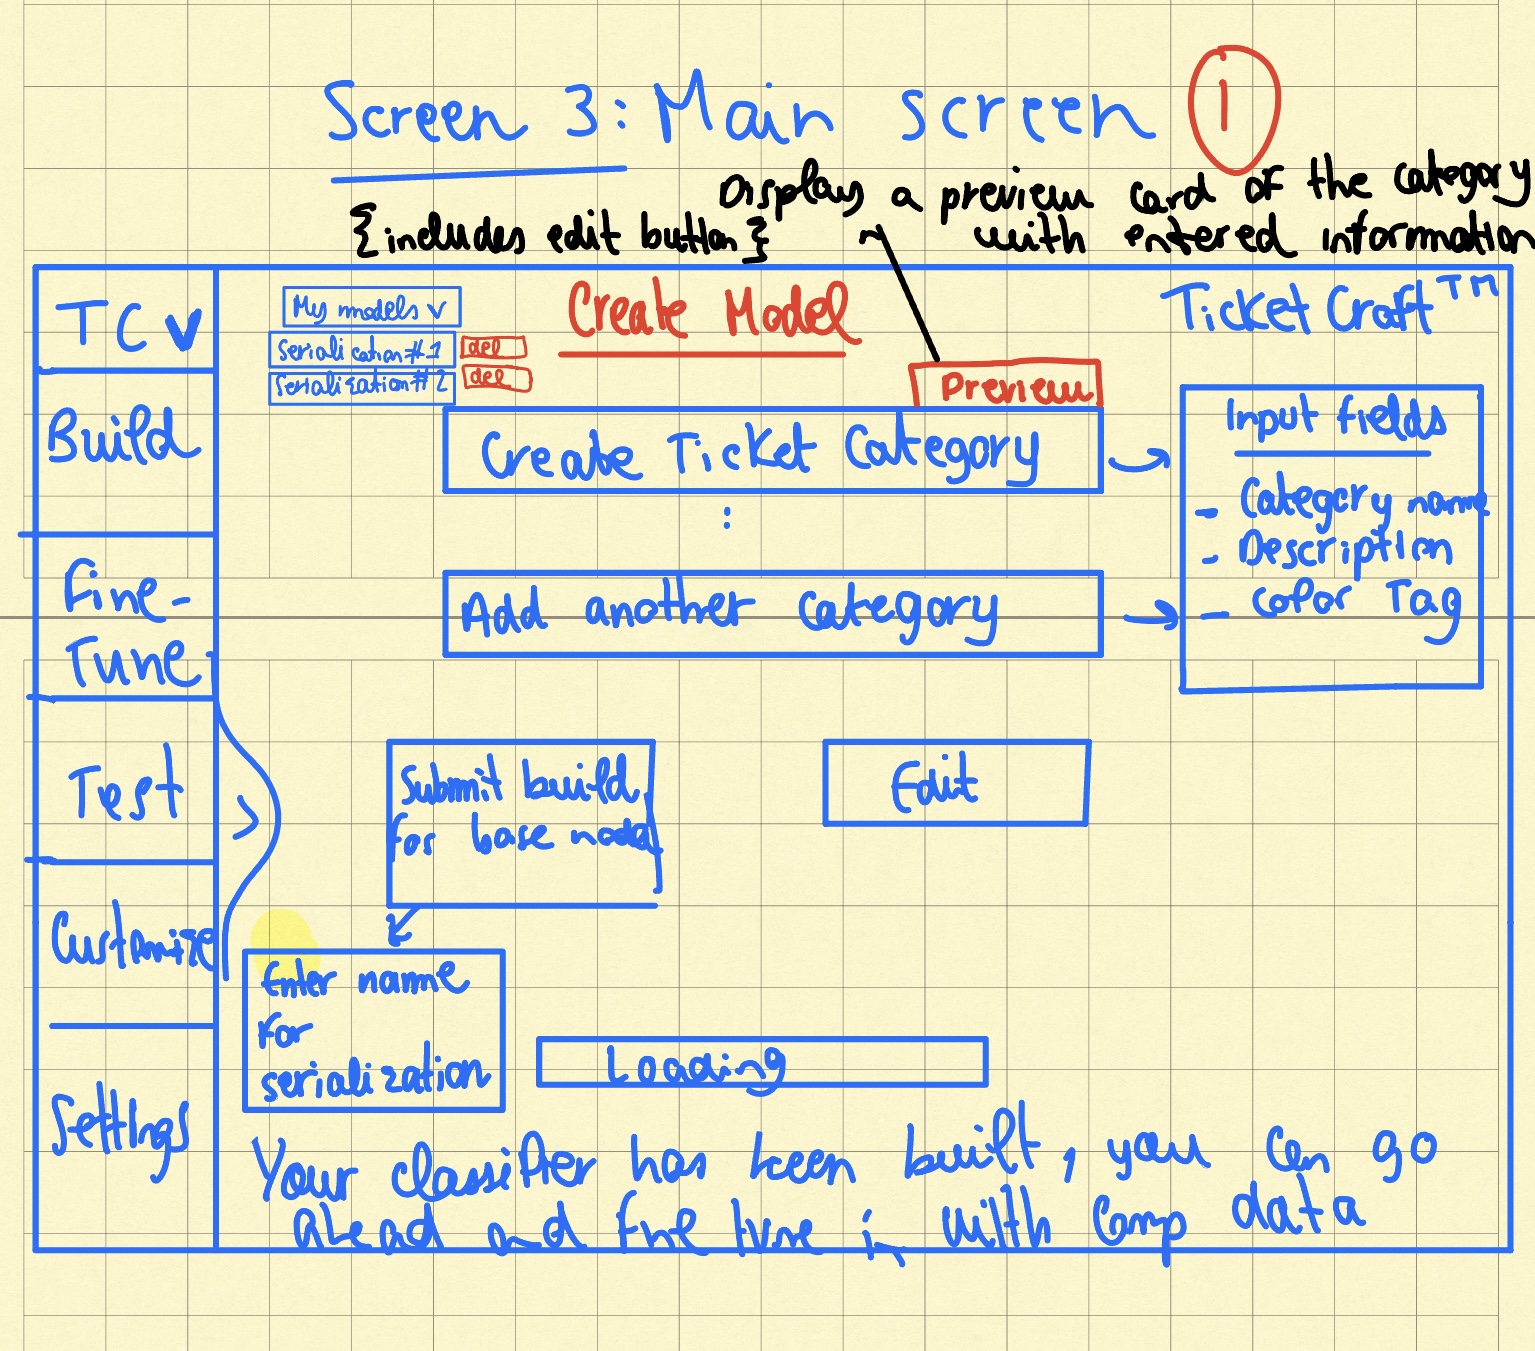 Screen 3: Main screen
1
Displays a preview card of the category
{includes edit button} ~ with entered information
TC v
Build
Fine-
Tune
Test
>
Customize
Settings
My models v
Serialization #1 del
Serialization #2 del
Create Model
TicketCraft™
Preview
Create Ticket Category
:
Add another category
Input fields
- Category name
- Description
- Color Tag
Submit build
for base model
Edit
Enter name
for
serialization
Loading
Your classifier has been built, you can go
ahead and fine tune it with comp data